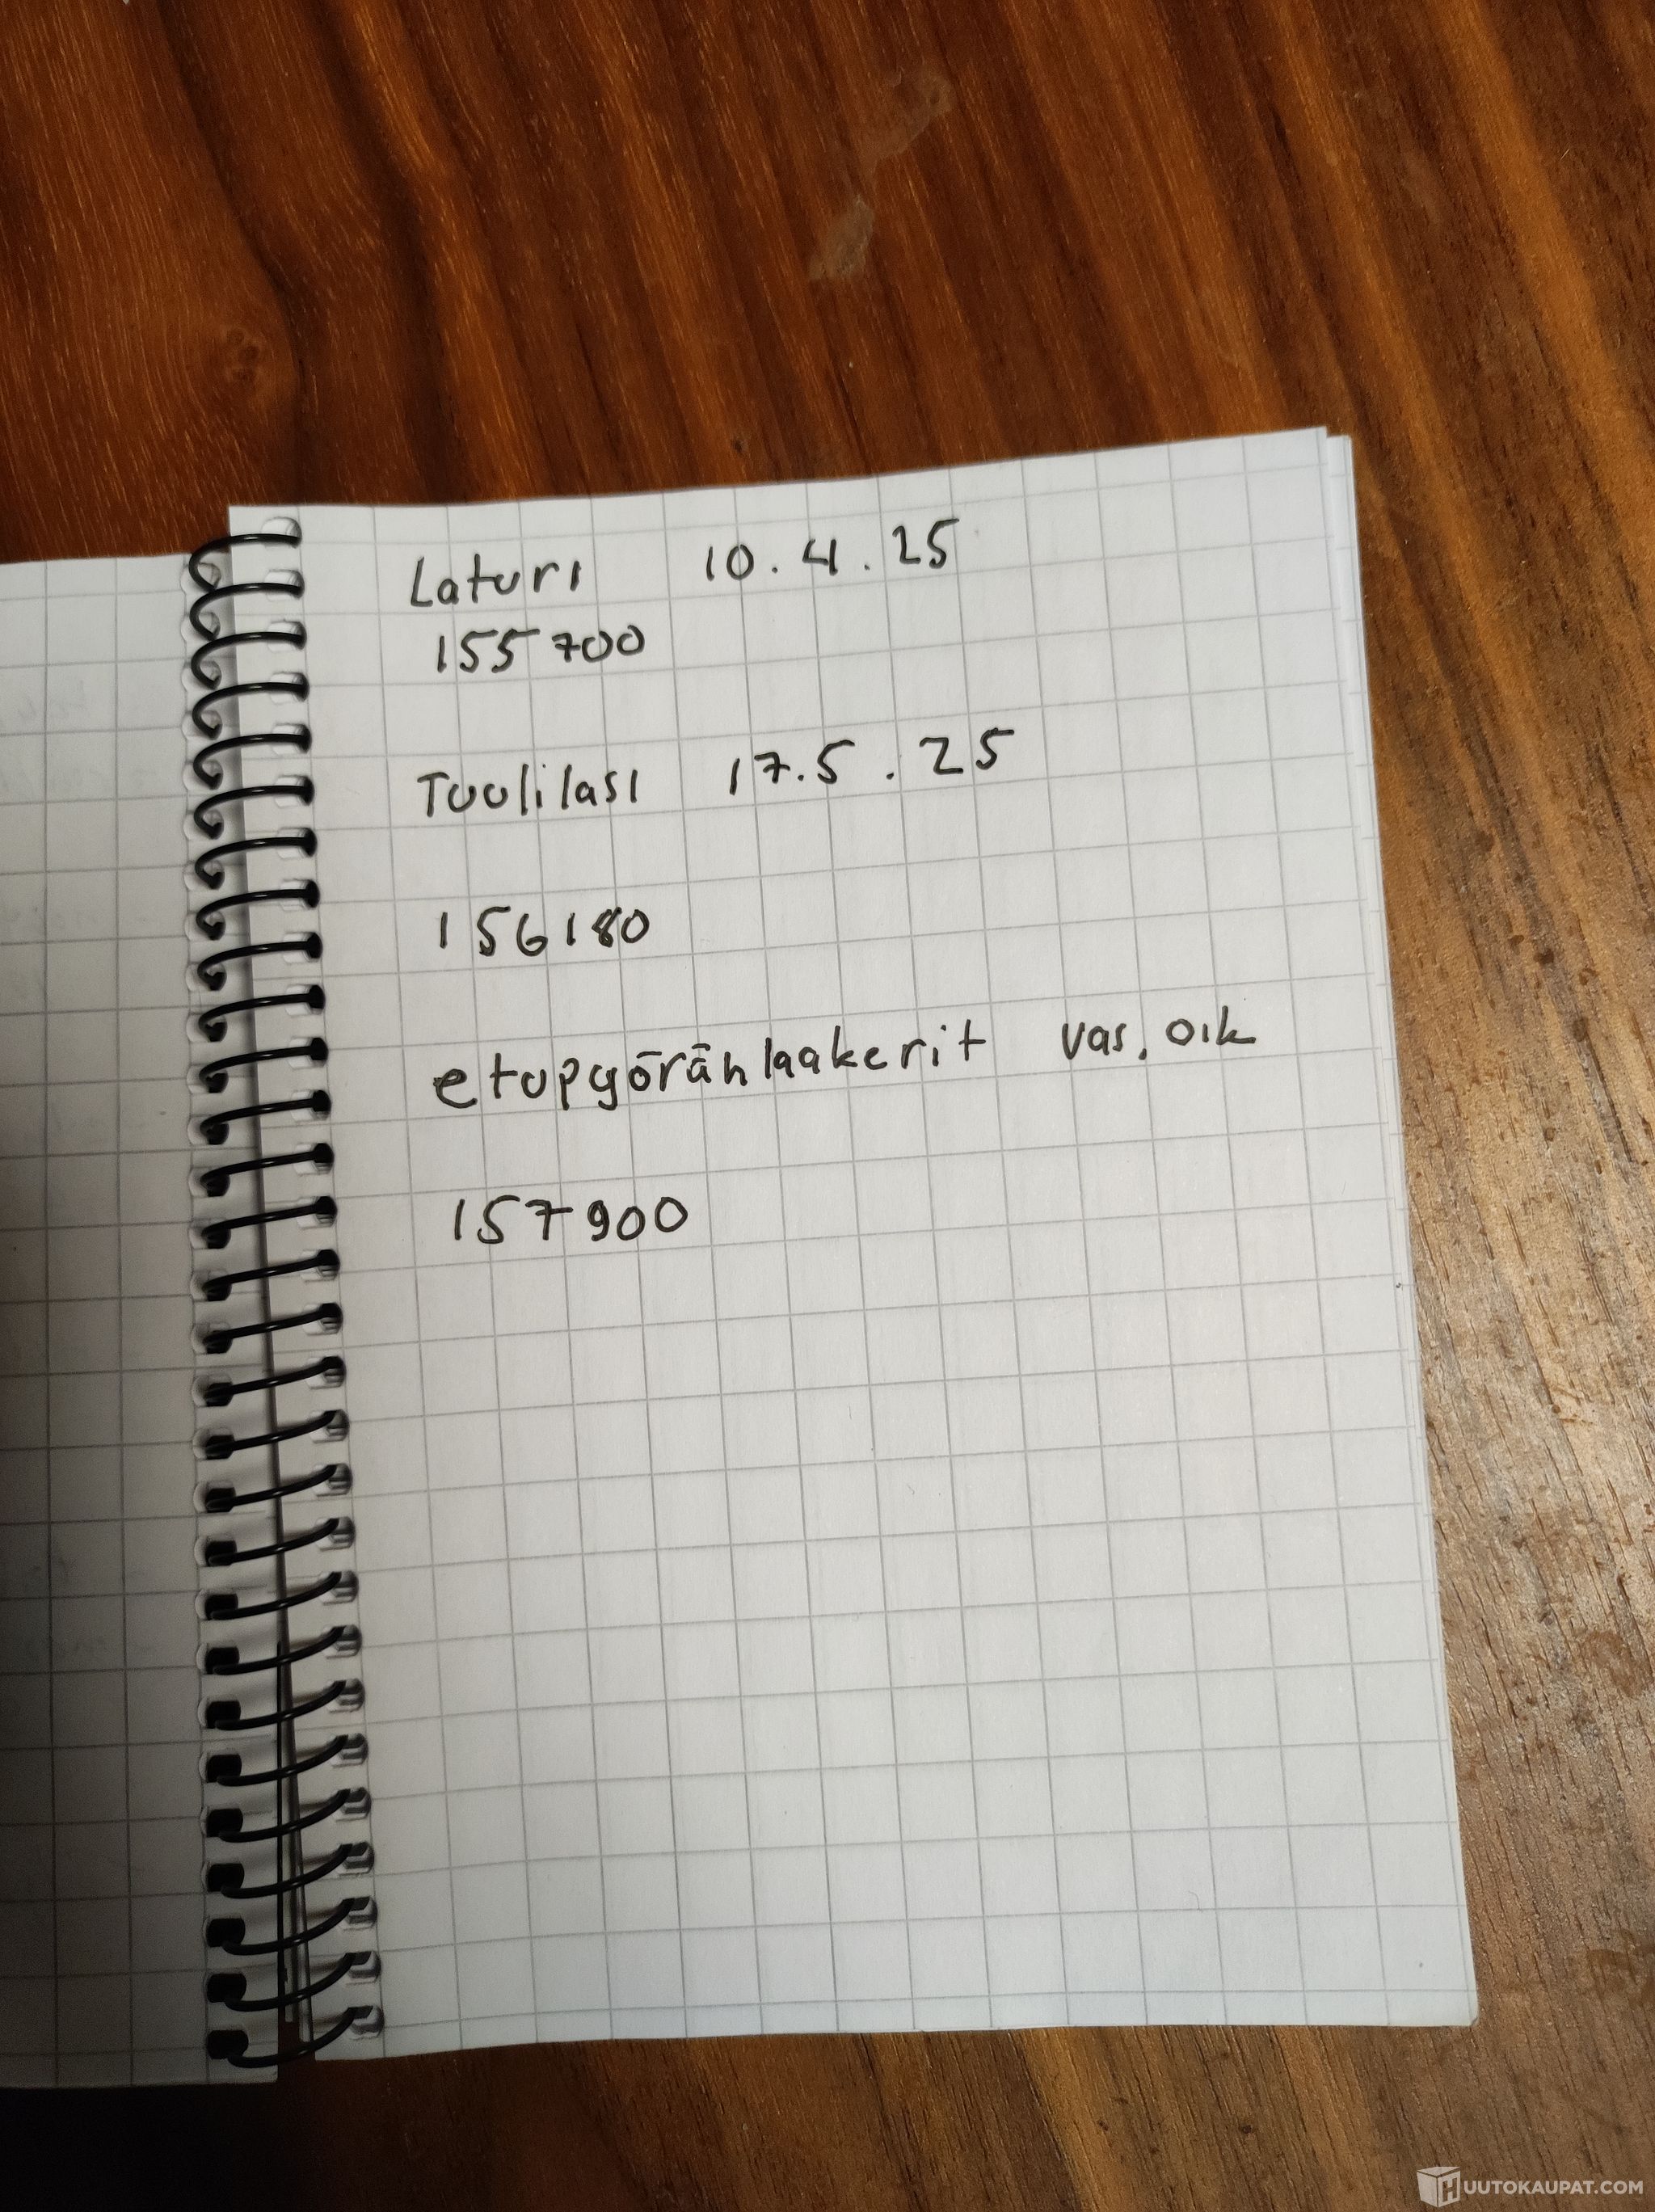 Laturi 10.4.25
155700
Tuulilasi 17.5.25
156180
etupyöränlaakerit vas. oik
157900
HUUTOKAUPAT.COM